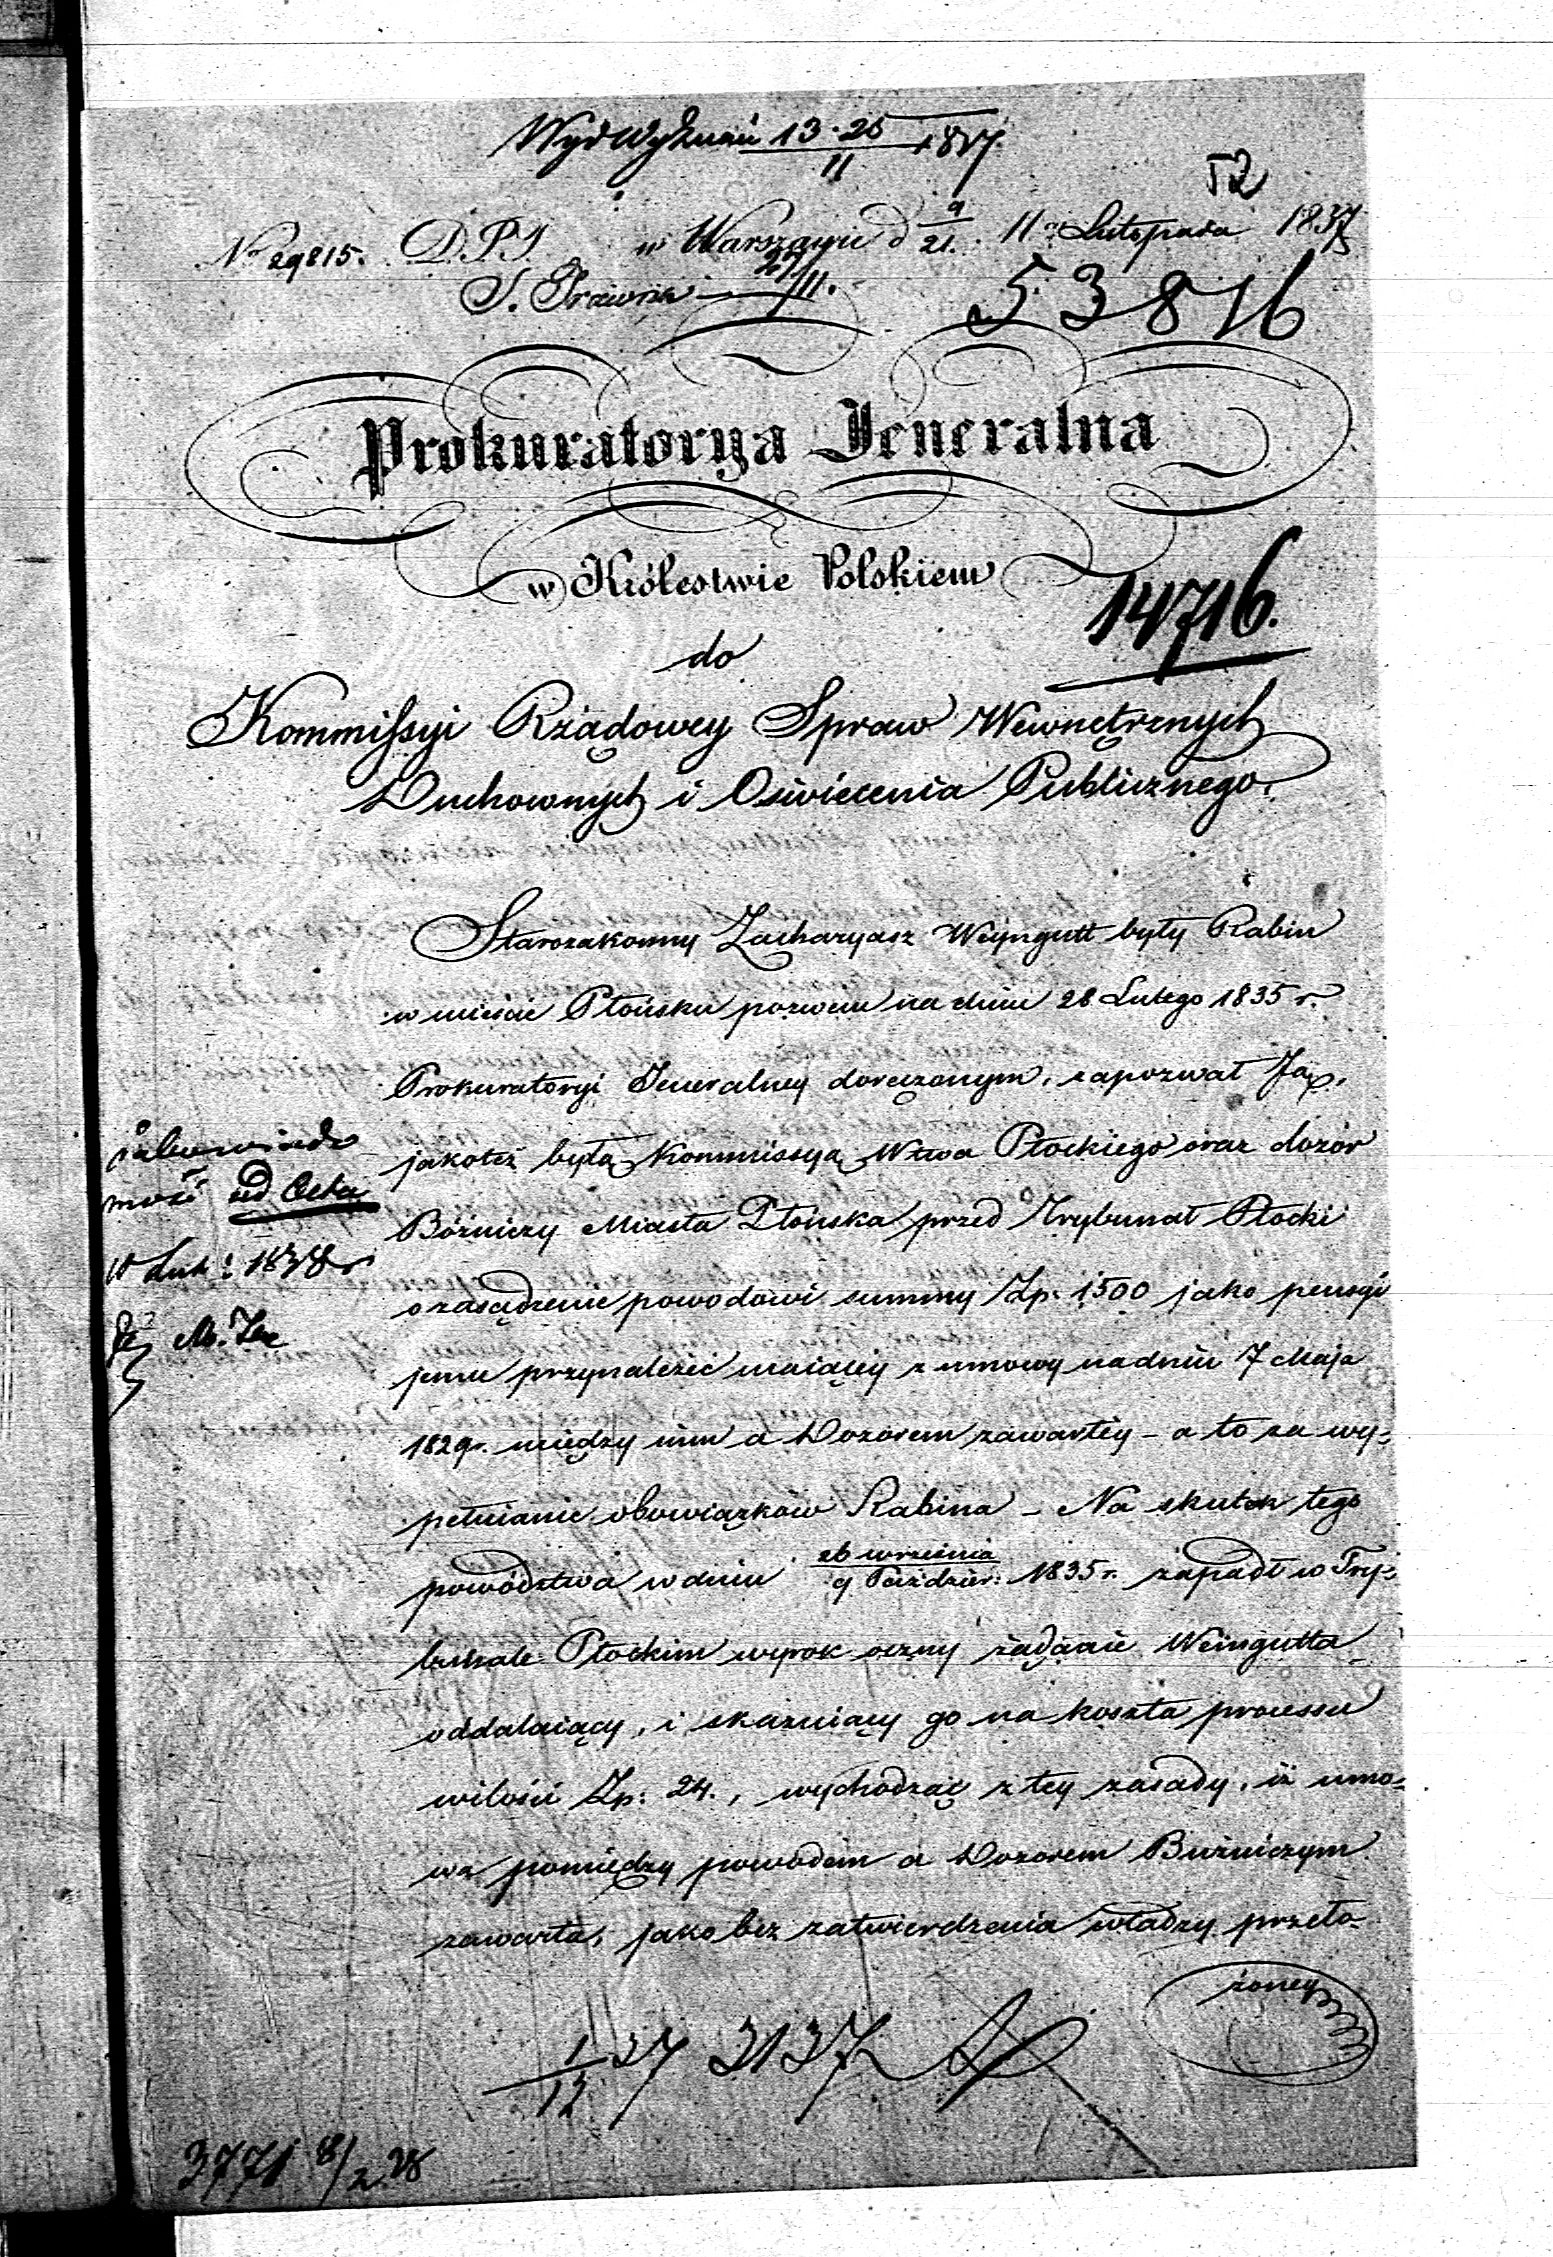 Wyd Wyznań 13·25/11 1837.
52
No 29815. D.P.J. w Warszawie d 9/21. 11a Listopada 1837
27/11.
53816
Prokuratorya Jeneralna
w Królestwie Polskiem
14716.
do
Kommissyi Rządowey Spraw Wewnętrznych
Duchownych i Oświecenia Publicznego.
Starozakonny Zacharyasz Weyngutt były Rabin
w mieście Płońsku pozwem na dniu 28 Lutego 1835 r.
Prokuratoryi Jeneralney doręczonym, zapozwał Ją,
jakoteż byłą Kommissyą Wztwa Płockiego oraz dozór
Bóżniczy Miasta Płońska przed Trybunał Płocki
o zasądzenie powodowi summy Zp. 1500 jako pensyi
jemu przynależeć maiącey z umowy na dniu 7 Maja
1829 r. między nim a Dozorem zawartey – a to za wy-
pełnianie obowiązków Rabina – Na skutek tego
powództwa w dniu 26 września/9 Paźdźier: 1835 r. zapadł w Try-
bunale Płockim wyrok oczny żądanie Weingutta
oddalaiący, i skazuiący go na koszta processu
wilości Zp: 24., wychodząc z tey zasady, iż umo-
wa pomiędzy powodem a Dozorem Bużniczym
zawarta, jako bez zatwierdzenia władzy przeło-
żoney
ad Acta
1838 r
1/12 37 3137
3771 8/2 38